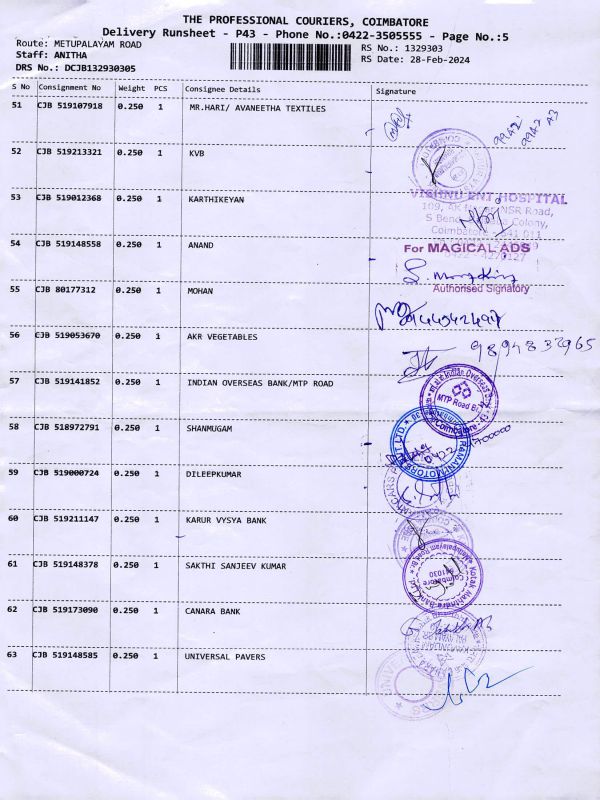 THE PROFESSIONAL COURIERS, COIMBATORE
Delivery Runsheet - P43 - Phone No.:0422-3505555 - Page No.:5
Route: METUPALAYAM ROAD RS No.: 1329303
Staff: ANITHA RS Date: 28-Feb-2024
DRS No.: DCJB132930305
S No Consignment No Weight PCS Consignee Details Signature
51 CJB 519107918 0.250 1 MR.HARI/ AVANEETHA TEXTILES
52 CJB 519213321 0.250 1 KVB
53 CJB 519012368 0.250 1 KARTHIKEYAN
VISHNU ENT HOSPITAL
NSR Road,
Colony,
Coimbatore - 641 011
54 CJB 519148558 0.250 1 ANAND
For MAGICAL ADS
Authorised Signatory
55 CJB 80177312 0.250 1 MOHAN
56 CJB 519053670 0.250 1 AKR VEGETABLES
9894832965
57 CJB 519141852 0.250 1 INDIAN OVERSEAS BANK/MTP ROAD
Indian Overseas
MTP Road Br.
Coimbatore
58 CJB 518972791 0.250 1 SHANMUGAM
59 CJB 519000724 0.250 1 DILEEPKUMAR
60 CJB 519211147 0.250 1 KARUR VYSYA BANK
61 CJB 519148378 0.250 1 SAKTHI SANJEEV KUMAR
Kotak Mahindra Bank Ltd.
Coimbatore
62 CJB 519173090 0.250 1 CANARA BANK
63 CJB 519148585 0.250 1 UNIVERSAL PAVERS